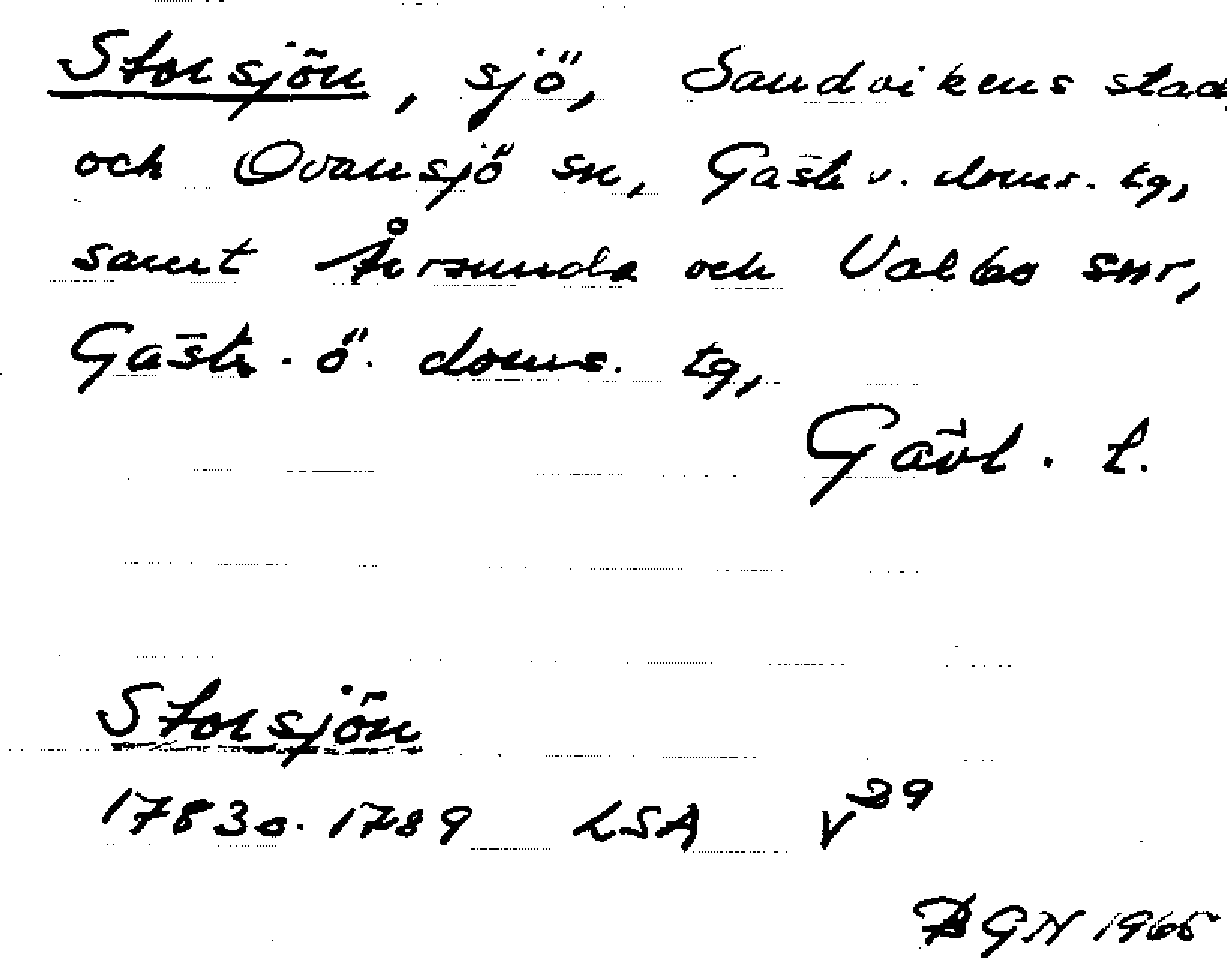 Storsjön, sjö, Sandvikens stad
och Ovansjö sn, Gästr v. doms. tg,
samt Årsunda och Valbo snr,
Gästr. ö. doms. tg,
Gävl. l.
Storsjön
1783 o. 1789 LSA V 29
GN 1965